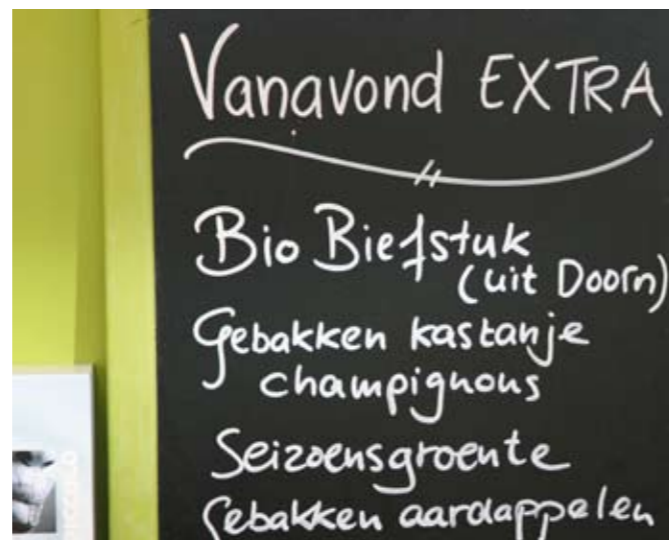 Vanavond EXTRA
Bio Biefstuk
(uit Doorn)
Gebakken kastanje
champignons
Seizoensgroente
Gebakken aardappelen